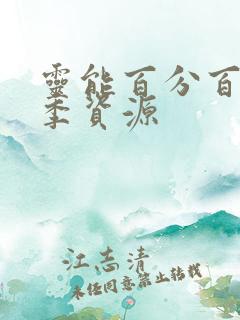 靈能百分百
季資源
江志清
未經同意禁止轉載